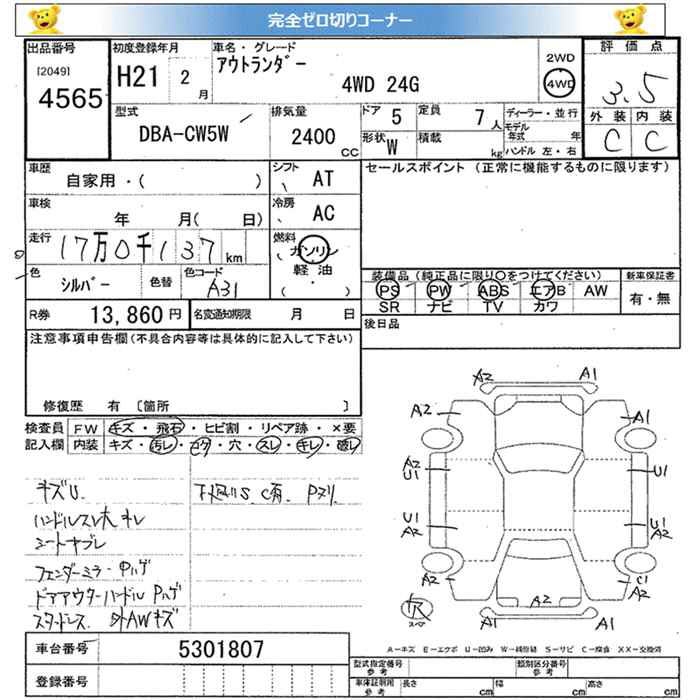 完全ゼロ切りコーナー
出品番号 初度登録年月 車名・グレード 評価点
[2049] 4565
H21 2 月
アウトランダー
4WD 24G
2WD
4WD
3.5
外装 内装
C C
型式 排気量 ドア 5 定員 7 人
DBA-CW5W 2400 CC
形状 W 積載 kg
ディーラー・並行
モデル年式 年
ハンドル 左・右
車歴 自家用・( )
シフト AT
セールスポイント (正常に機能するものに限ります)
車検 年 月( 日)
冷房 AC
走行 17万0千137 km
燃料 ガソリン
軽油
( ・ )
色 シルバー 色替 色コード A31
装備品 (純正品に限り○をつけてください) 新車保証書
PS PW ABS エアB AW 有・無
SR ナビ TV カワ
R券 13,860 円 名変通知期限 月 日
後日品
注意事項申告欄(不具合内容等は具体的に記入して下さい)
修復歴 有 [箇所 ]
検査員 FW キズ・飛石・ヒビ割・リペア跡・×要
記入欄 内装 キズ・汚レ・コゲ・穴・スレ・キレ・破レ
キズU.
ハンドルスレ大 キレ
シートヤブレ
フェンダーミラーPハゲ
ドアアウターハンドルPハゲ
スタッドレス 外AWキズ
S C有
A2 A1
A2 A1
A2 U1
U1
U1 A2
U1 A2
A2 C1 A2
A2
A1 A1
スペア
A-キズ E-エクボ U-凹み W-補修跡 S-サビ C-腐食 XX-交換済
車台番号 5301807
登録番号
型式指定番号 参考 類別区分番号 参考
車体証明用 参考 長さ cm 幅 cm 高さ cm